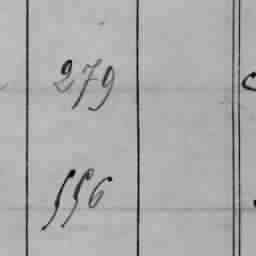 279
556